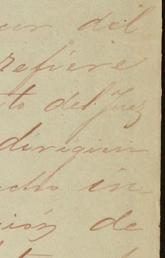 del
refiere
to del Juez
dirigien
cho in
ción de